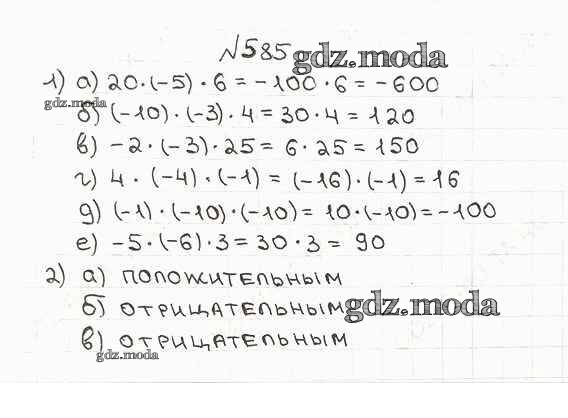 №585 gdz.moda
1) а) 20·(-5)·6 = -100·6 = -600
gdz.moda
б) (-10)·(-3)·4 = 30·4 = 120
в) -2·(-3)·25 = 6·25 = 150
г) 4·(-4)·(-1) = (-16)·(-1) = 16
д) (-1)·(-10)·(-10) = 10·(-10) = -100
е) -5·(-6)·3 = 30·3 = 90
2) а) ПОЛОЖИТЕЛЬНЫМ
б) ОТРИЦАТЕЛЬНЫМ gdz.moda
в) ОТРИЦАТЕЛЬНЫМ
gdz.moda